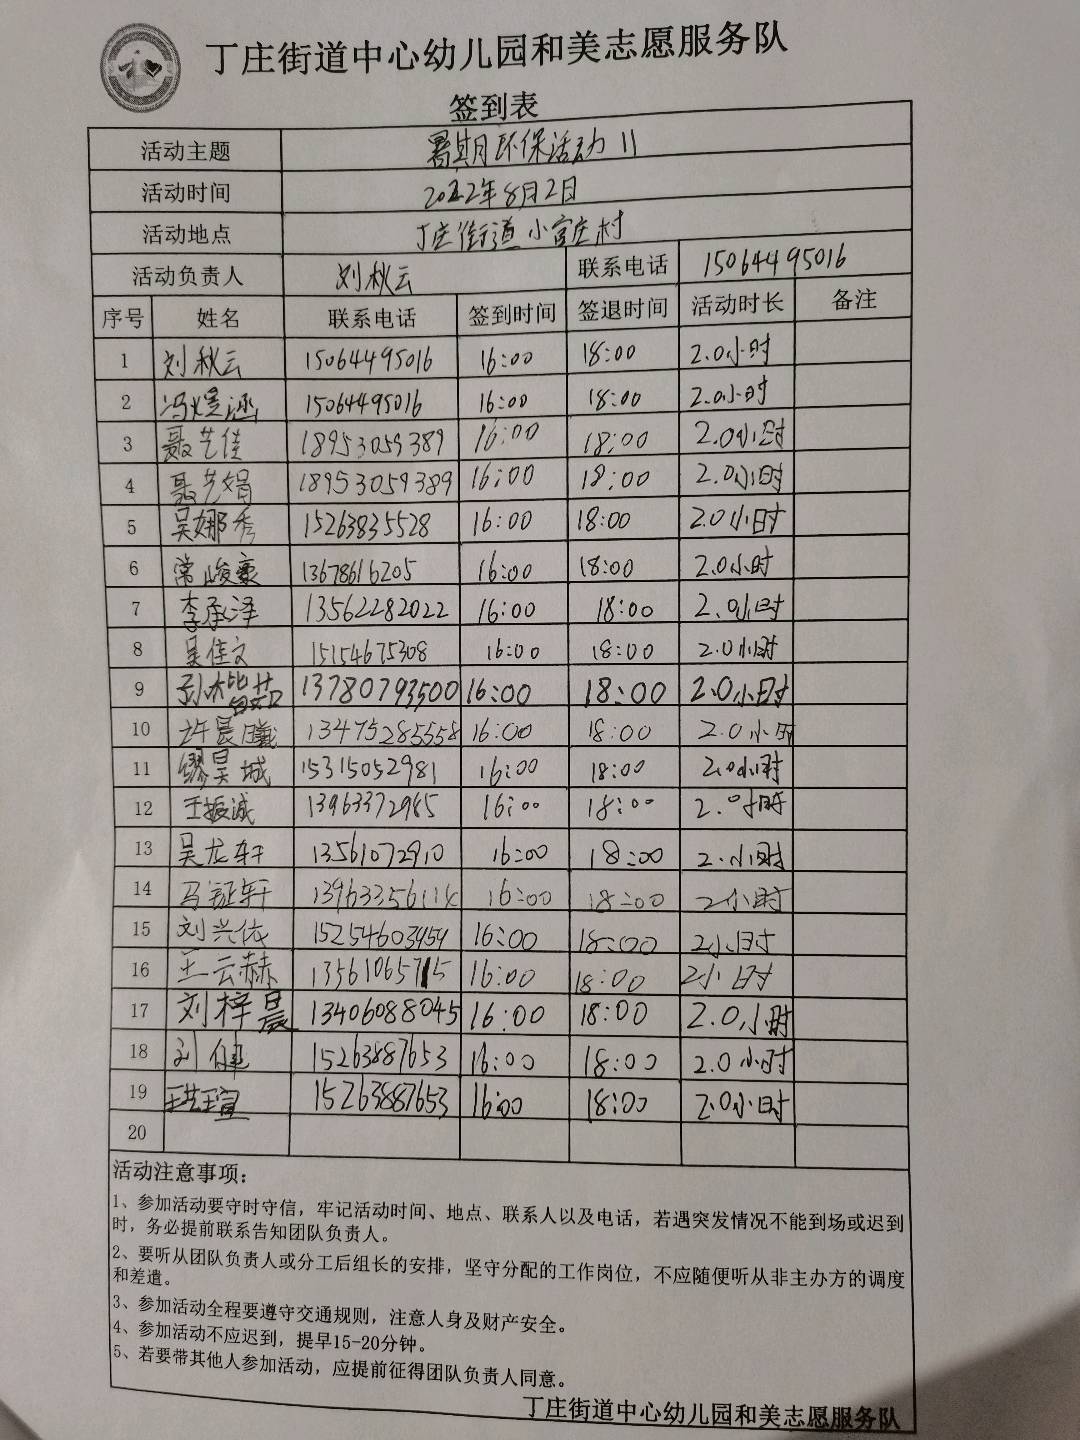 丁庄街道中心幼儿园和美志愿服务队
签到表
活动主题 暑期环保活动 11
活动时间 2022年8月2日
活动地点 丁庄街道小富庄村
活动负责人 刘秋云 联系电话 15064495016
序号 姓名 联系电话 签到时间 签退时间 活动时长 备注
1 刘秋云 15064495016 16:00 18:00 2.0小时
2 冯煜涵 15064495016 16:00 18:00 2.0小时
3 聂艺佳 18953059389 16:00 18:00 2.0小时
4 聂艺娟 18953059389 16:00 18:00 2.0小时
5 吴娜秀 15263835528 16:00 18:00 2.0小时
6 常峻豪 13678616205 16:00 18:00 2.0小时
7 李承泽 13562282022 16:00 18:00 2.0小时
8 吴佳文 15154675308 16:00 18:00 2.0小时
9 13780793500 16:00 18:00 2.0小时
10 许晨曦 13475285558 16:00 18:00 2.0小时
11 缪昊城 15315052981 16:00 18:00 2.0小时
12 王振诚 13963372985 16:00 18:00 2.0小时
13 吴龙轩 13561072910 16:00 18:00 2.小时
14 马钲轩 16:00 18:00 2小时
15 刘兴依 15254603454 16:00 18:00 2小时
16 王云赫 13561065715 16:00 18:00 2小时
17 刘梓晨 13406088045 16:00 18:00 2.0小时
18 刘健 15263887653 16:00 18:00 2.0小时
19 15263887653 16:00 18:00 2.0小时
20
活动注意事项：
1、参加活动要守时守信，牢记活动时间、地点、联系人以及电话，若遇突发情况不能到场或迟到
时，务必提前联系告知团队负责人。
2、要听从团队负责人或分工后组长的安排，坚守分配的工作岗位，不应随便听从非主办方的调度
和差遣。
3、参加活动全程要遵守交通规则，注意人身及财产安全。
4、参加活动不应迟到，提早15-20分钟。
5、若要带其他人参加活动，应提前征得团队负责人同意。
丁庄街道中心幼儿园和美志愿服务队